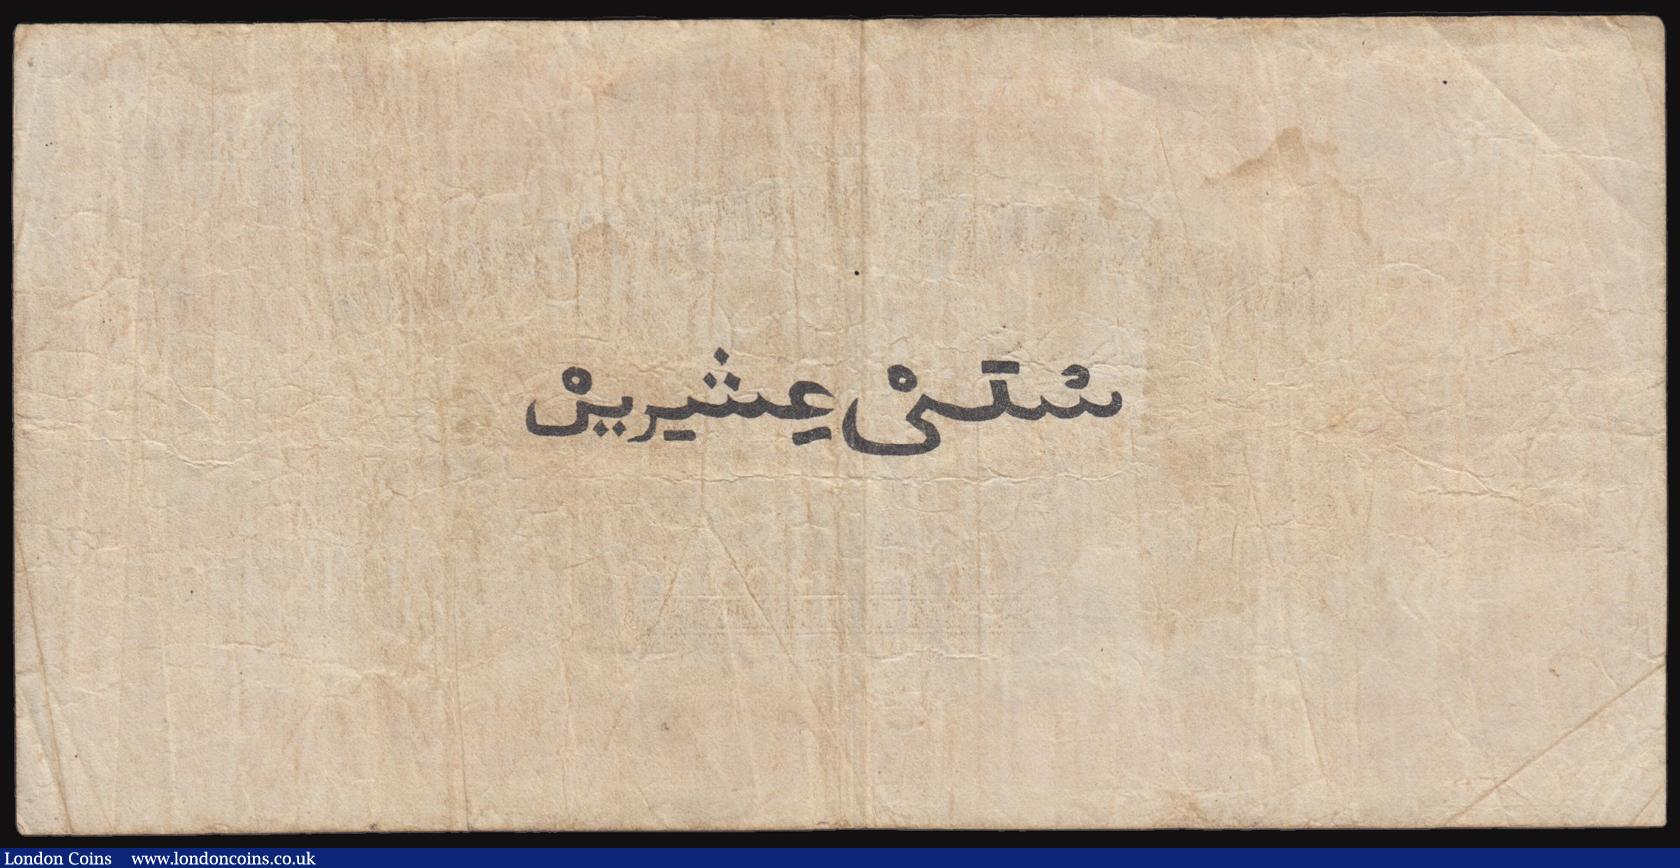 سُتَنْ عِشيرينْ
London Coins www.londoncoins.co.uk